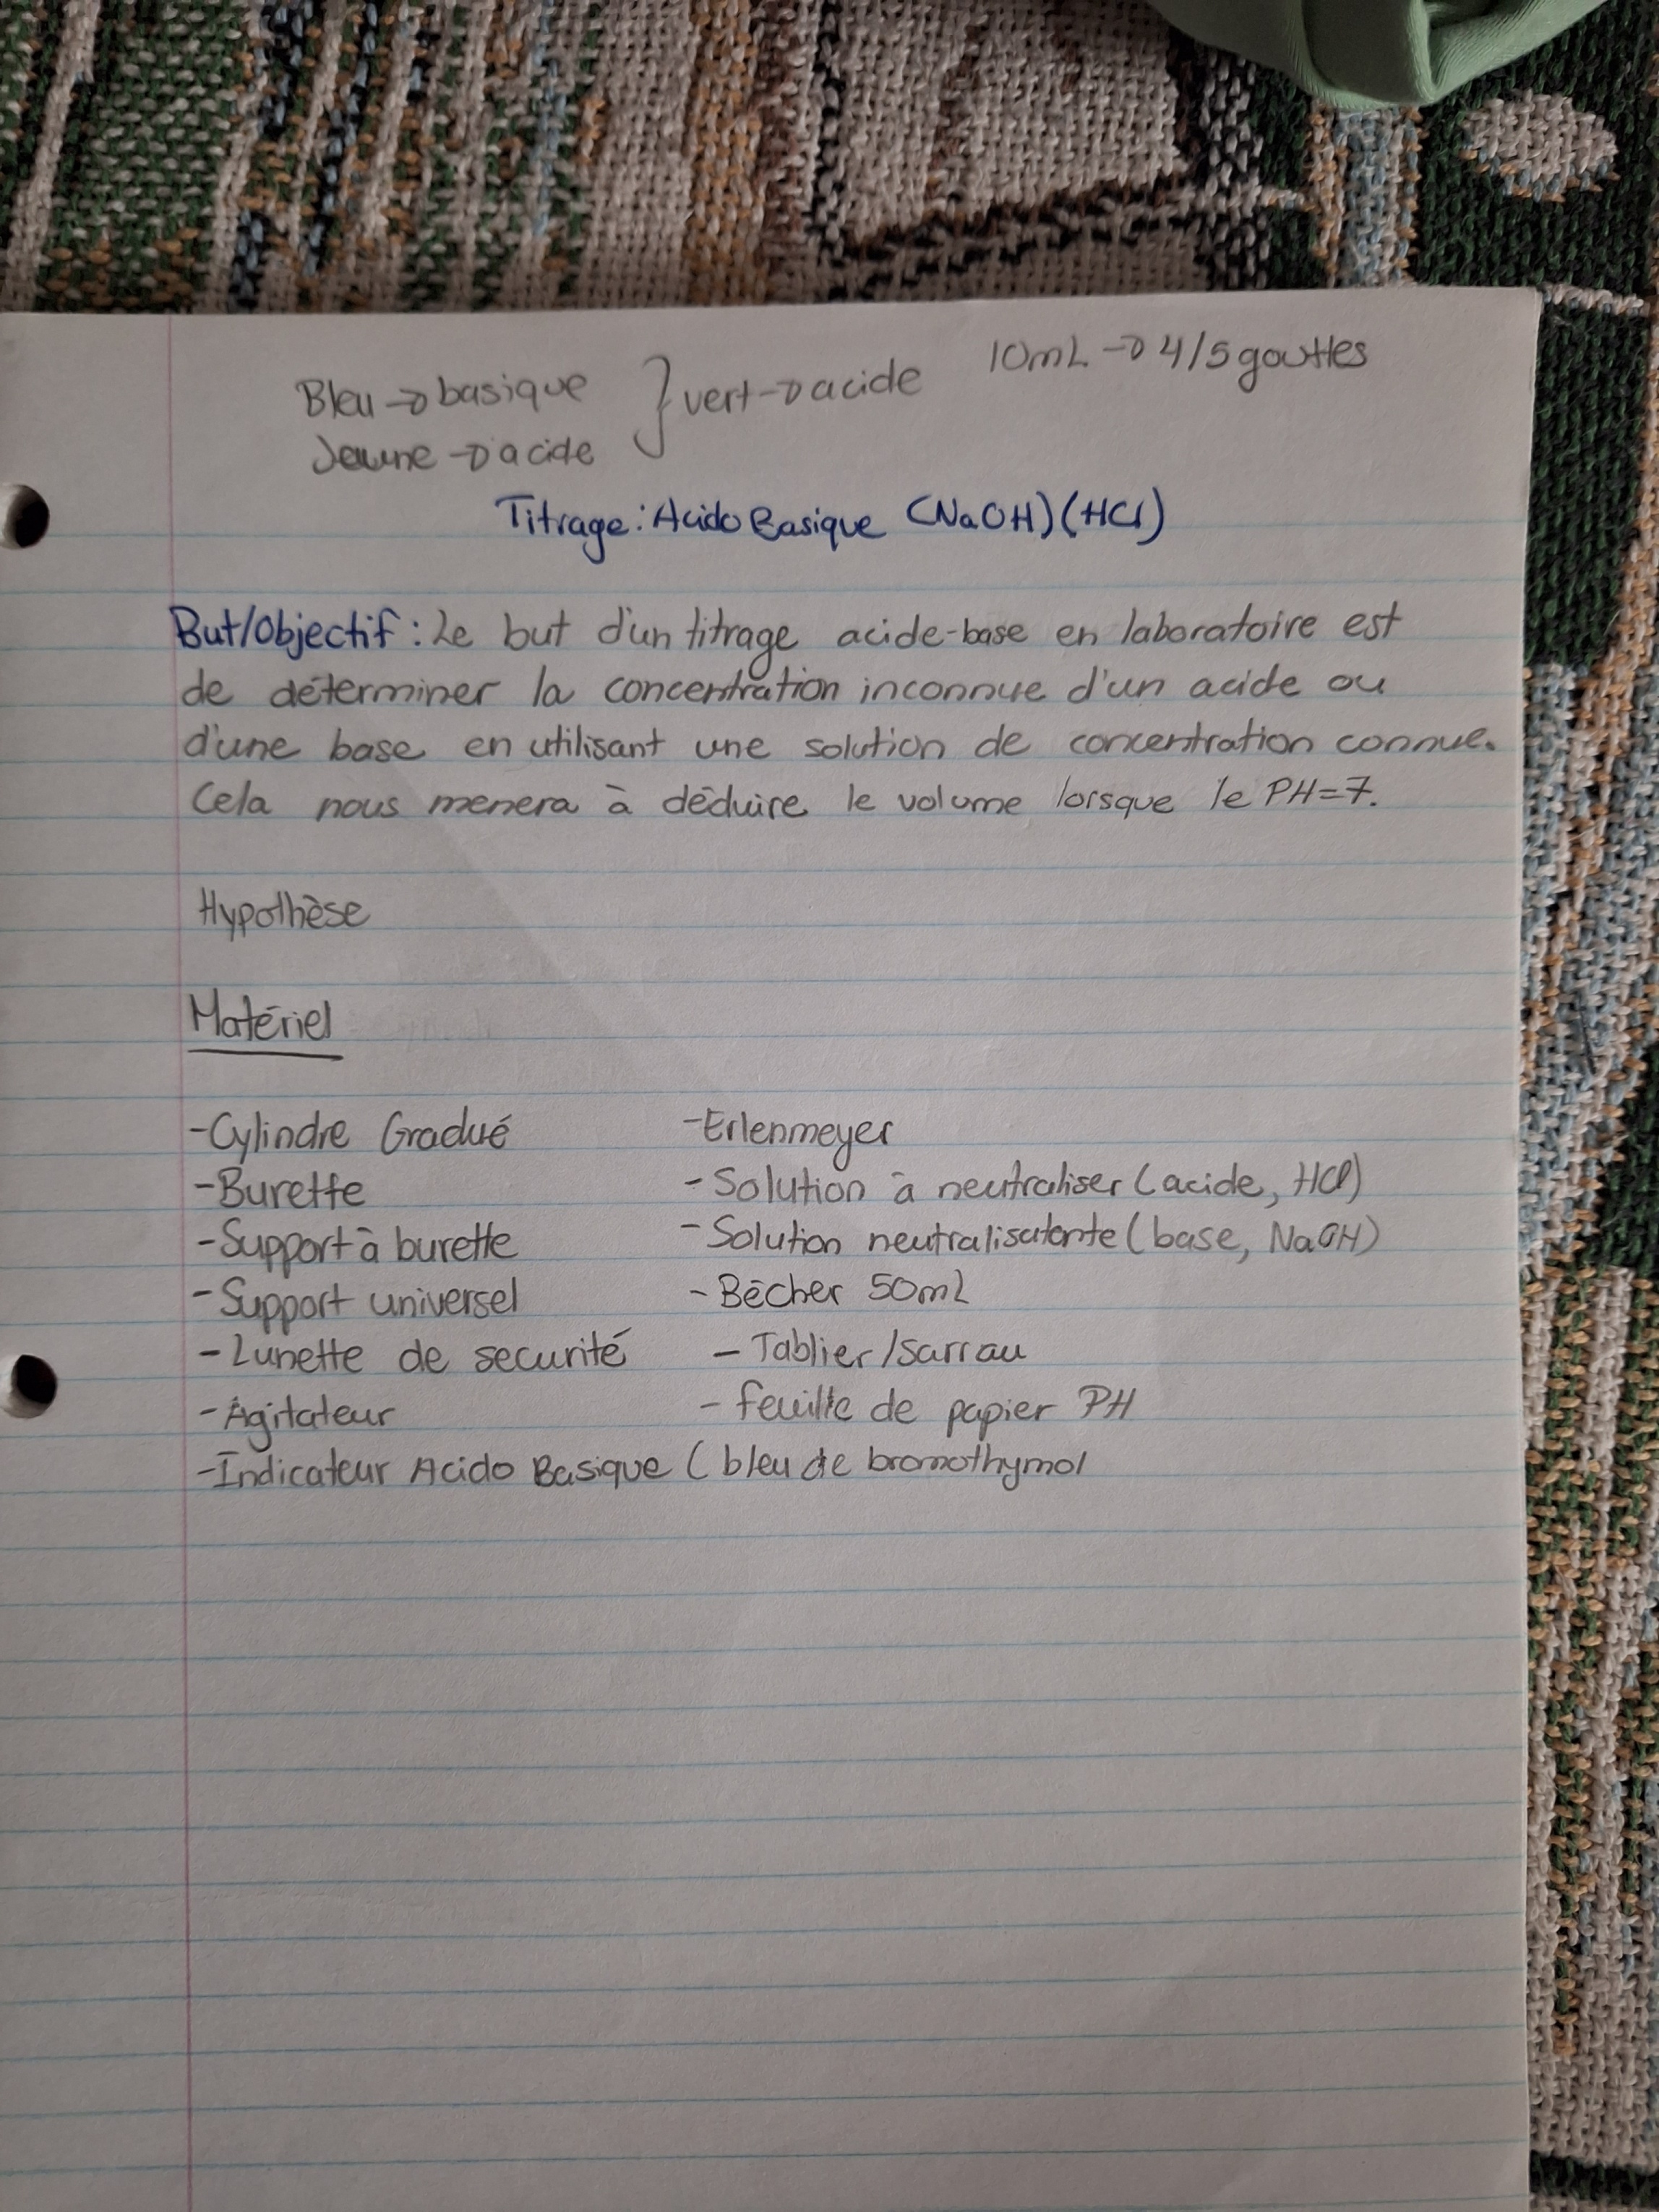 Bleu → basique } vert → acide 10mL → 4/5 gouttes
Jaune → acide
Titrage: Acido Basique (NaOH) (HCl)
But/Objectif : Le but d'un titrage acide-base en laboratoire est
de déterminer la concentration inconnue d'un acide ou
d'une base en utilisant une solution de concentration connue.
Cela nous menera à déduire le volume lorsque le PH=7.
Hypothèse
Matériel
-Cylindre Gradué
-Burette
-Support à burette
-Support universel
-Lunette de securité
-Agitateur
-Indicateur Acido Basique (bleu de bromothymol
-Erlenmeyer
-Solution à neutraliser (acide, HCl)
-Solution neutralisatante (base, NaOH)
-Bécher 50mL
-Tablier/sarrau
-feuille de papier PH